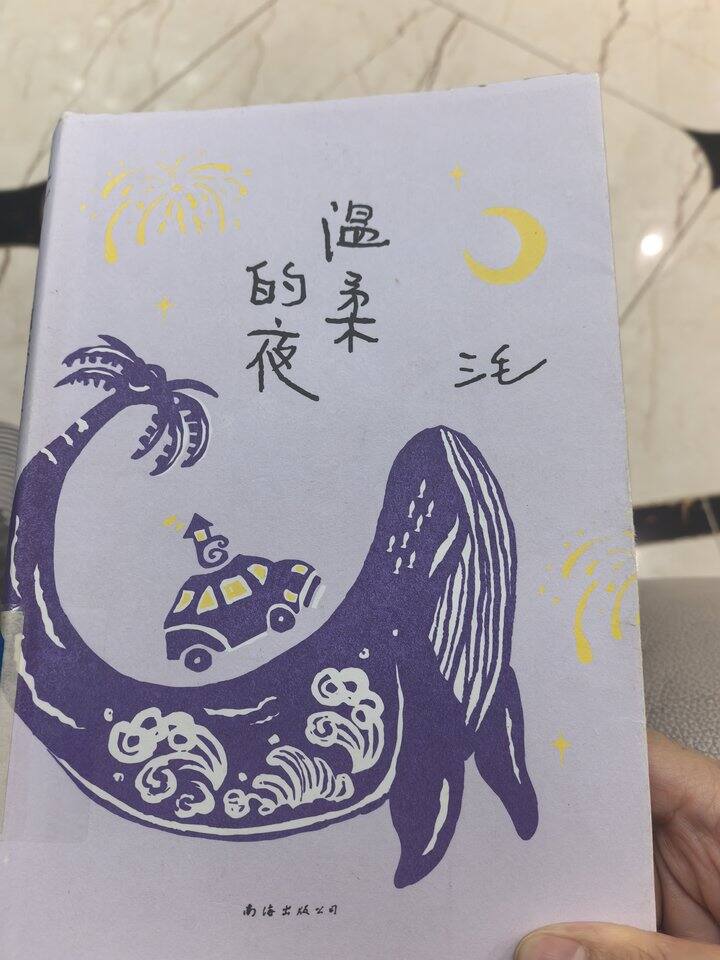 温柔
的夜
三毛
南海出版公司